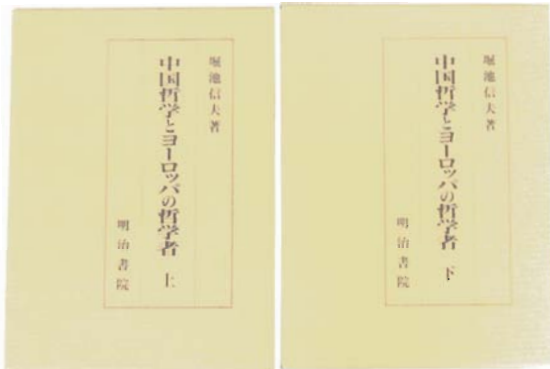 堀池信夫著
中国哲学とヨーロッパの哲学者 上
明治書院
堀池信夫著
中国哲学とヨーロッパの哲学者 下
明治書院